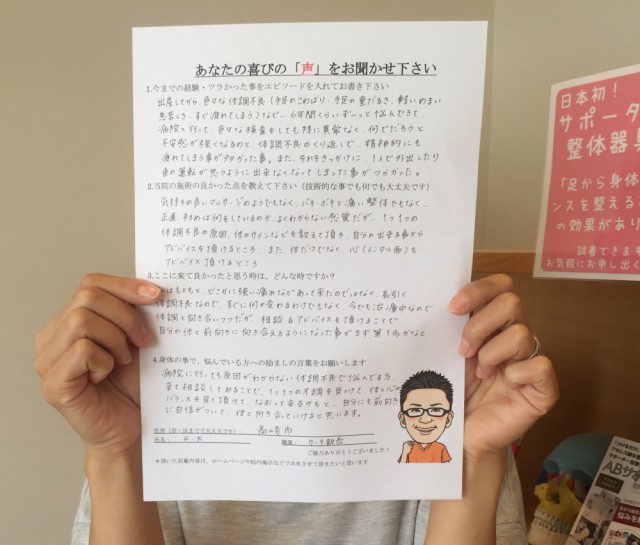 あなたの喜びの「声」をお聞かせ下さい
1.今までの経験・ツラかった事をエピソードを入れてお書き下さい
出産してから、色々な体調不良(手足のこわばり・手足の重だるさ、軽いめまい
息苦しさ、すぐ疲れてしまう)など… 6年間くらいずーっと悩んできて、
病院へ行って、色々な検査をしても特に異常なく、何でだろうと
不安感が強くなるのと、体調不良のくり返しで、精神的にも
疲れてしまう事が多かった。また、それをきっかけに、1人で外出したり
車の運転が思うように出来なくなってしまった事がつらかった。
2.当院の施術の良かった点を教えて下さい(技術的な事でも何でも大丈夫です)
気持ちの良いマッサージのようでもなく、バキ・ボキと痛い整体でもなく…
正直、初めは何をしているのか、よくわからない感覚だが、1つ1つの
体調不良の原因、体のサインなどを教えて頂き、自分の出来る事から
アドバイスを頂けるところ、また、体だけでなく、心(メンタル面)も
アドバイス頂けるところ
3.ここに来て良かったと思う時は、どんな時ですか?
はもともと、どこかに強い痛みなどあって来たのではなく、長引く
体調不良なので、すぐに何か変わるわけでもなく、今でも治療中なので
体調と向き合いつつだが、相談&アドバイスを頂けることで
自分の体と前向きに向き合えるようになった事がまず第1歩かなと
4.身体の事で、悩んでいる方への励ましの言葉をお願いします
病院に行っても原因がわからない体調不良で悩んでる方
来て相談してみることで、1つ1つの不調を見つけて、体と心の
バランスを見て頂けて、なおって来るかもと、自分にも前向き
に自信がついて、体と向き合っていけると思います。
住所(市・区までで大丈夫です): 高崎市
氏名: K・K 職業:
ご協力ありがとうございました!
*頂いた記載内容は、ホームページや院内掲示などで共有させて頂きたいと思います
日本初!
サポータ
整体器具
「足から身体
ンスを整える
の効果があり
試着できます
お気軽にお申し出く